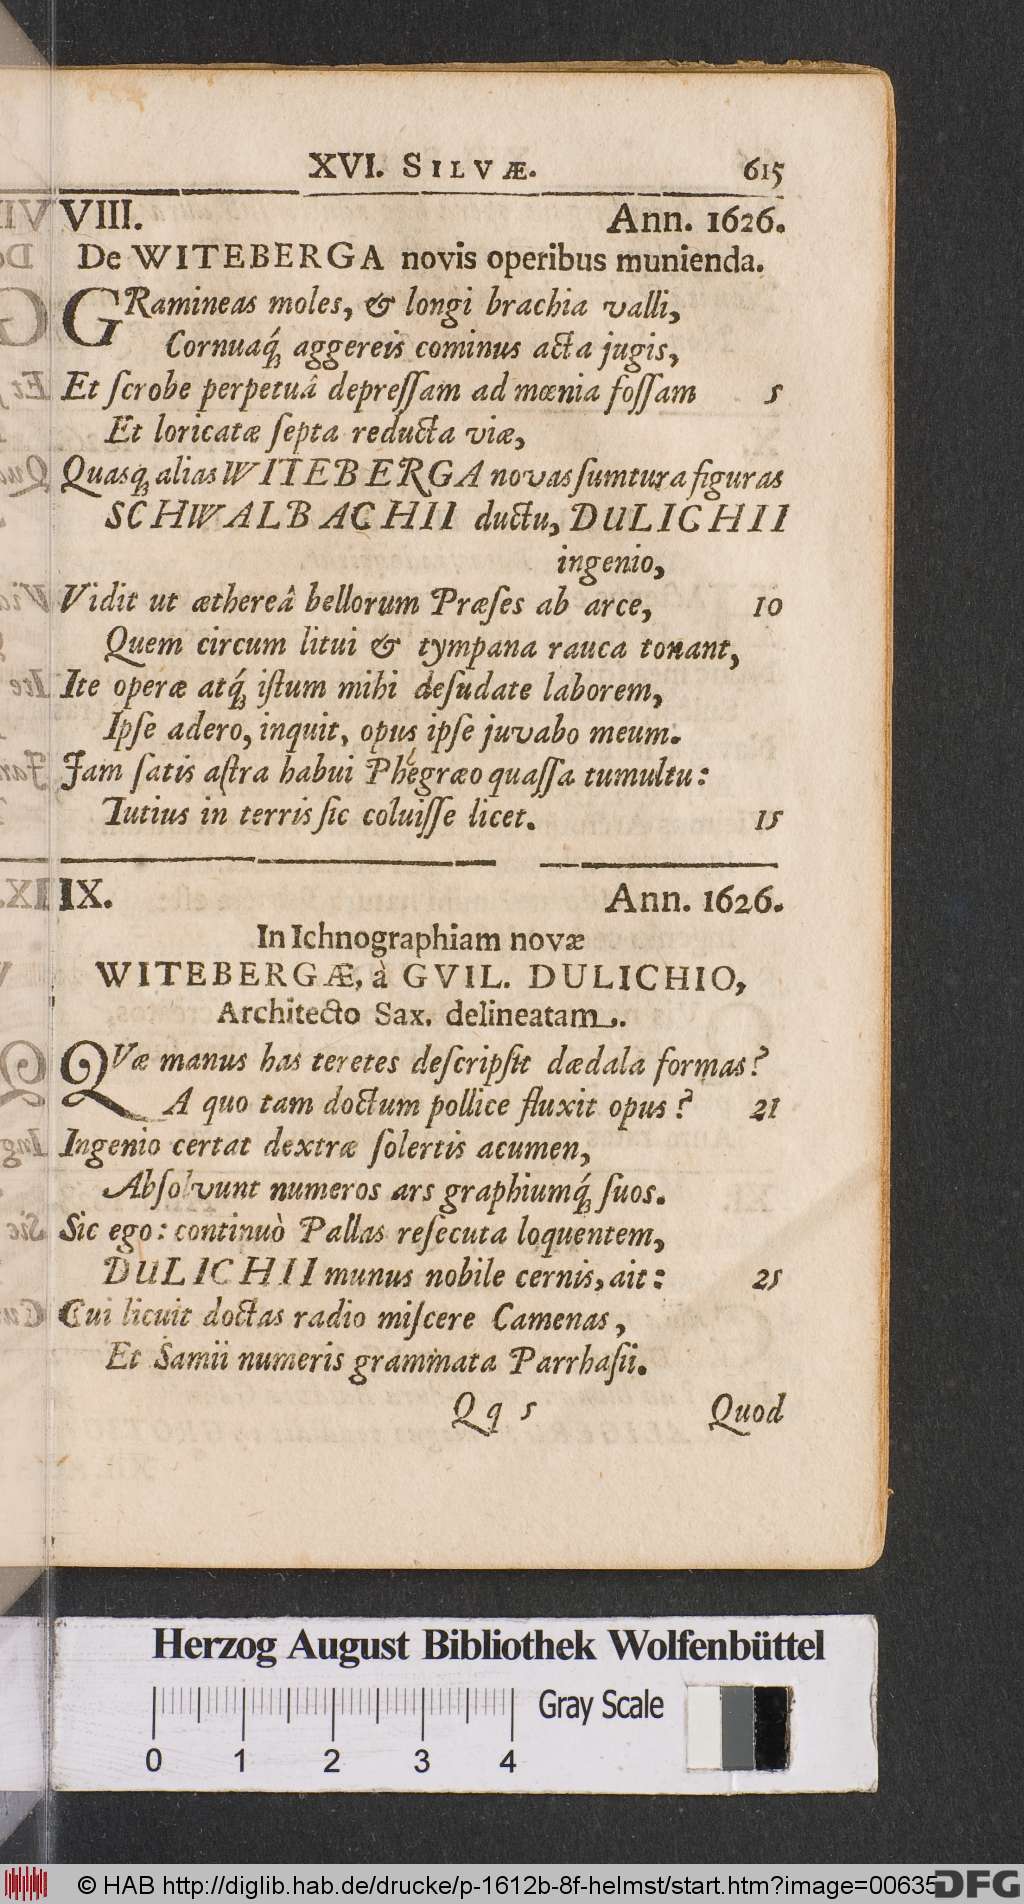 XVI. SILVÆ. 615
VIII. Ann. 1626.
De WITEBERGA novis operibus munienda.
GRamineas moles, & longi brachia valli,
Cornuaq́ꝫ aggereis cominus acta jugis,
Et ſcrobe perpetuâ depreſſam ad mœnia foſſam 5
Et loricatæ ſepta reducta viæ,
Quasqꝫ alias WITEBERGA novas ſumtura figuras
SCHWALBACHII ductu, DULICHII
ingenio,
Vidit ut æthereâ bellorum Præſes ab arce, 10
Quem circum litui & tympana rauca tonant,
Ite operæ atq́ꝫ iſtum mihi deſudate laborem,
Ipſe adero, inquit, opus ipſe juvabo meum.
Jam ſatis aſtra habui Phęgræo quaſſa tumultu:
Tutius in terris ſic coluiſſe licet. 15
IX. Ann. 1626.
In Ichnographiam novæ
WITEBERGÆ, à GVIL. DULICHIO,
Architecto Sax. delineatam.
QVæ manus has teretes deſcripſit dædala formas?
A quo tam doctum pollice fluxit opus? 21
Ingenio certat dextræ ſolertis acumen,
Abſolvunt numeros ars graphiumq́ꝫ ſuos.
Sic ego: continuò Pallas reſecuta loquentem,
DULICHII munus nobile cernis, ait: 25
Cui licuit doctas radio miſcere Camenas,
Et Samii numeris grammata Parrhaſii.
Qq 5 Quod
Herzog August Bibliothek Wolfenbüttel
Gray Scale
0 1 2 3 4
© HAB http://diglib.hab.de/drucke/p-1612b-8f-helmst/start.htm?image=00635
DFG